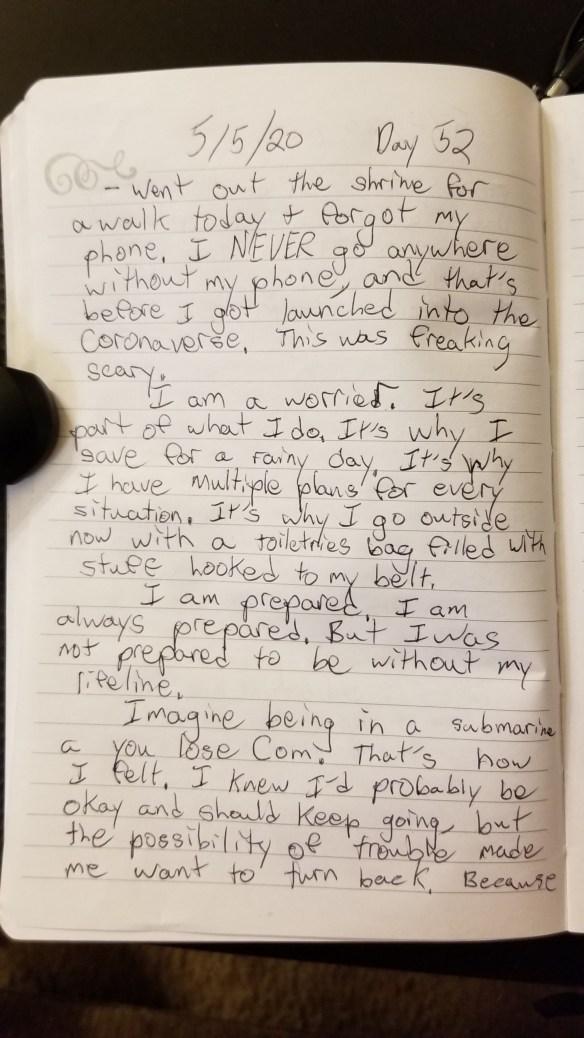 5/5/20 Day 52
- Went out the shrine for
a walk today & forgot my
phone. I NEVER go anywhere
without my phone, and that's
before I got launched into the
Coronaverse. This was freaking
scary.
I am a worrier. It's
part of what I do. It's why I
save for a rainy day. It's why
I have multiple plans for every
situation. It's why I go outside
now with a toiletries bag filled with
stuff hooked to my belt.
I am prepared. I am
always prepared. But I was
not prepared to be without my
lifeline.
Imagine being in a submarine
a you lose Com. That's how
I felt. I knew I'd probably be
okay and should keep going, but
the possibility of trouble made
me want to turn back. Because